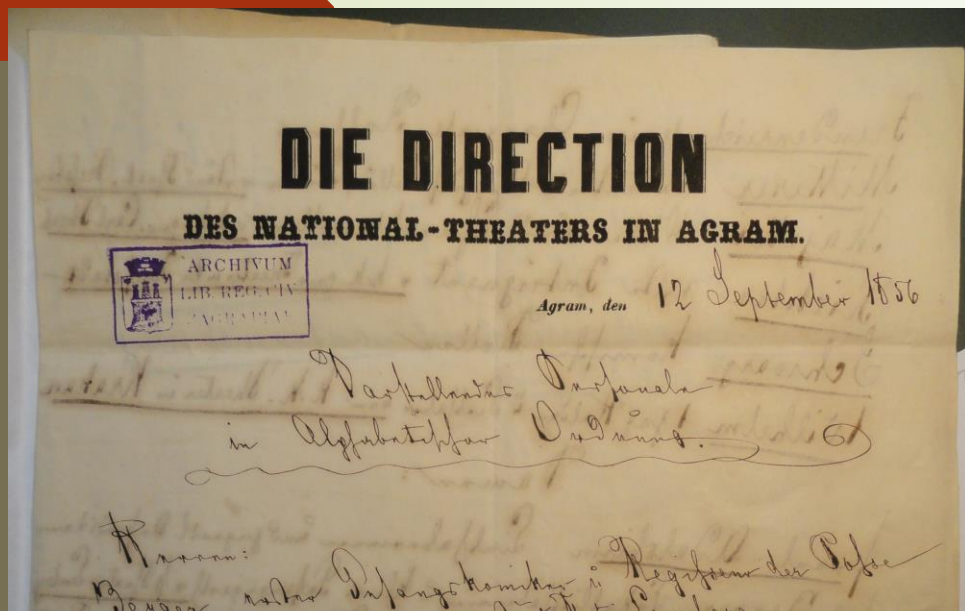 DIE DIRECTION
DES NATIONAL-THEATERS IN AGRAM.
ARCHIVUM
LIB. REG. CIV.
ZAGRABIAE
Agram, den 12 September 1856
Darstellendes Personale
in Alphabetischer Ordnung.
Herren:
Berger erster Gesangskomiker u Regisseur der Posse